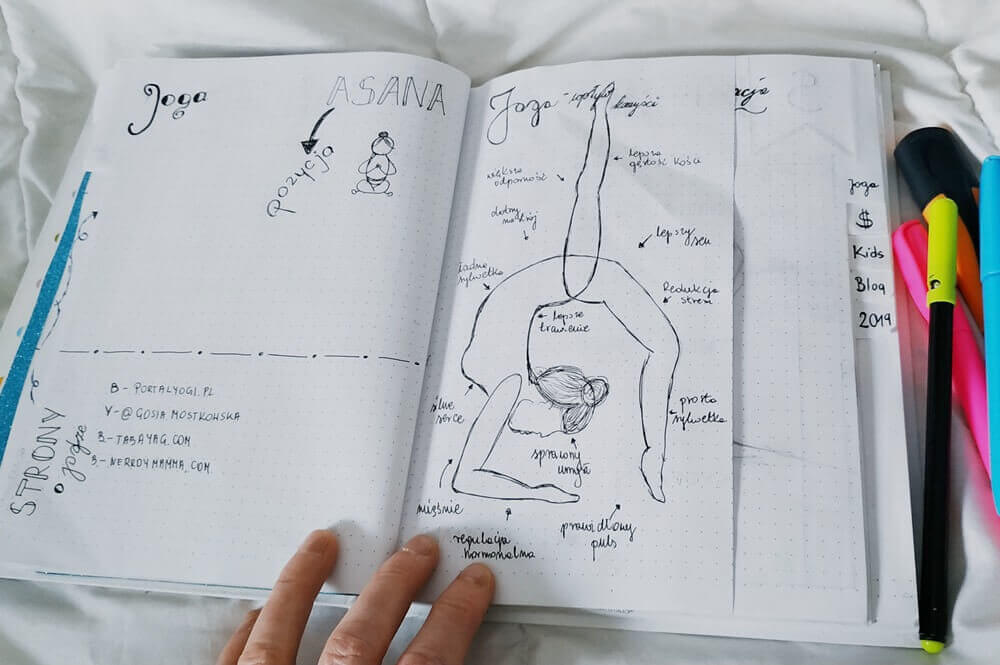 Joga
ASANA
pozycja
STRONY
o jodze
B - PORTALYOGI.PL
Y - @ GOSIA MOSTKOWSKA
B - TABAYAG.COM
B - NERRDYMAMMA.COM
Joga - wpływ korzyści
lepsza
gęstość kości
większa
odporność
dobry
nastrój
lepszy sen
ładna
sylwetka
Redukcja
stresu
lepsze
trawienie
silne
serce
prosta
sylwetka
sprawny
umysł
mięśnie
regulacja
hormonalna
prawidłowy
puls
acja
S
Joga
$
Kids
Blog
2019